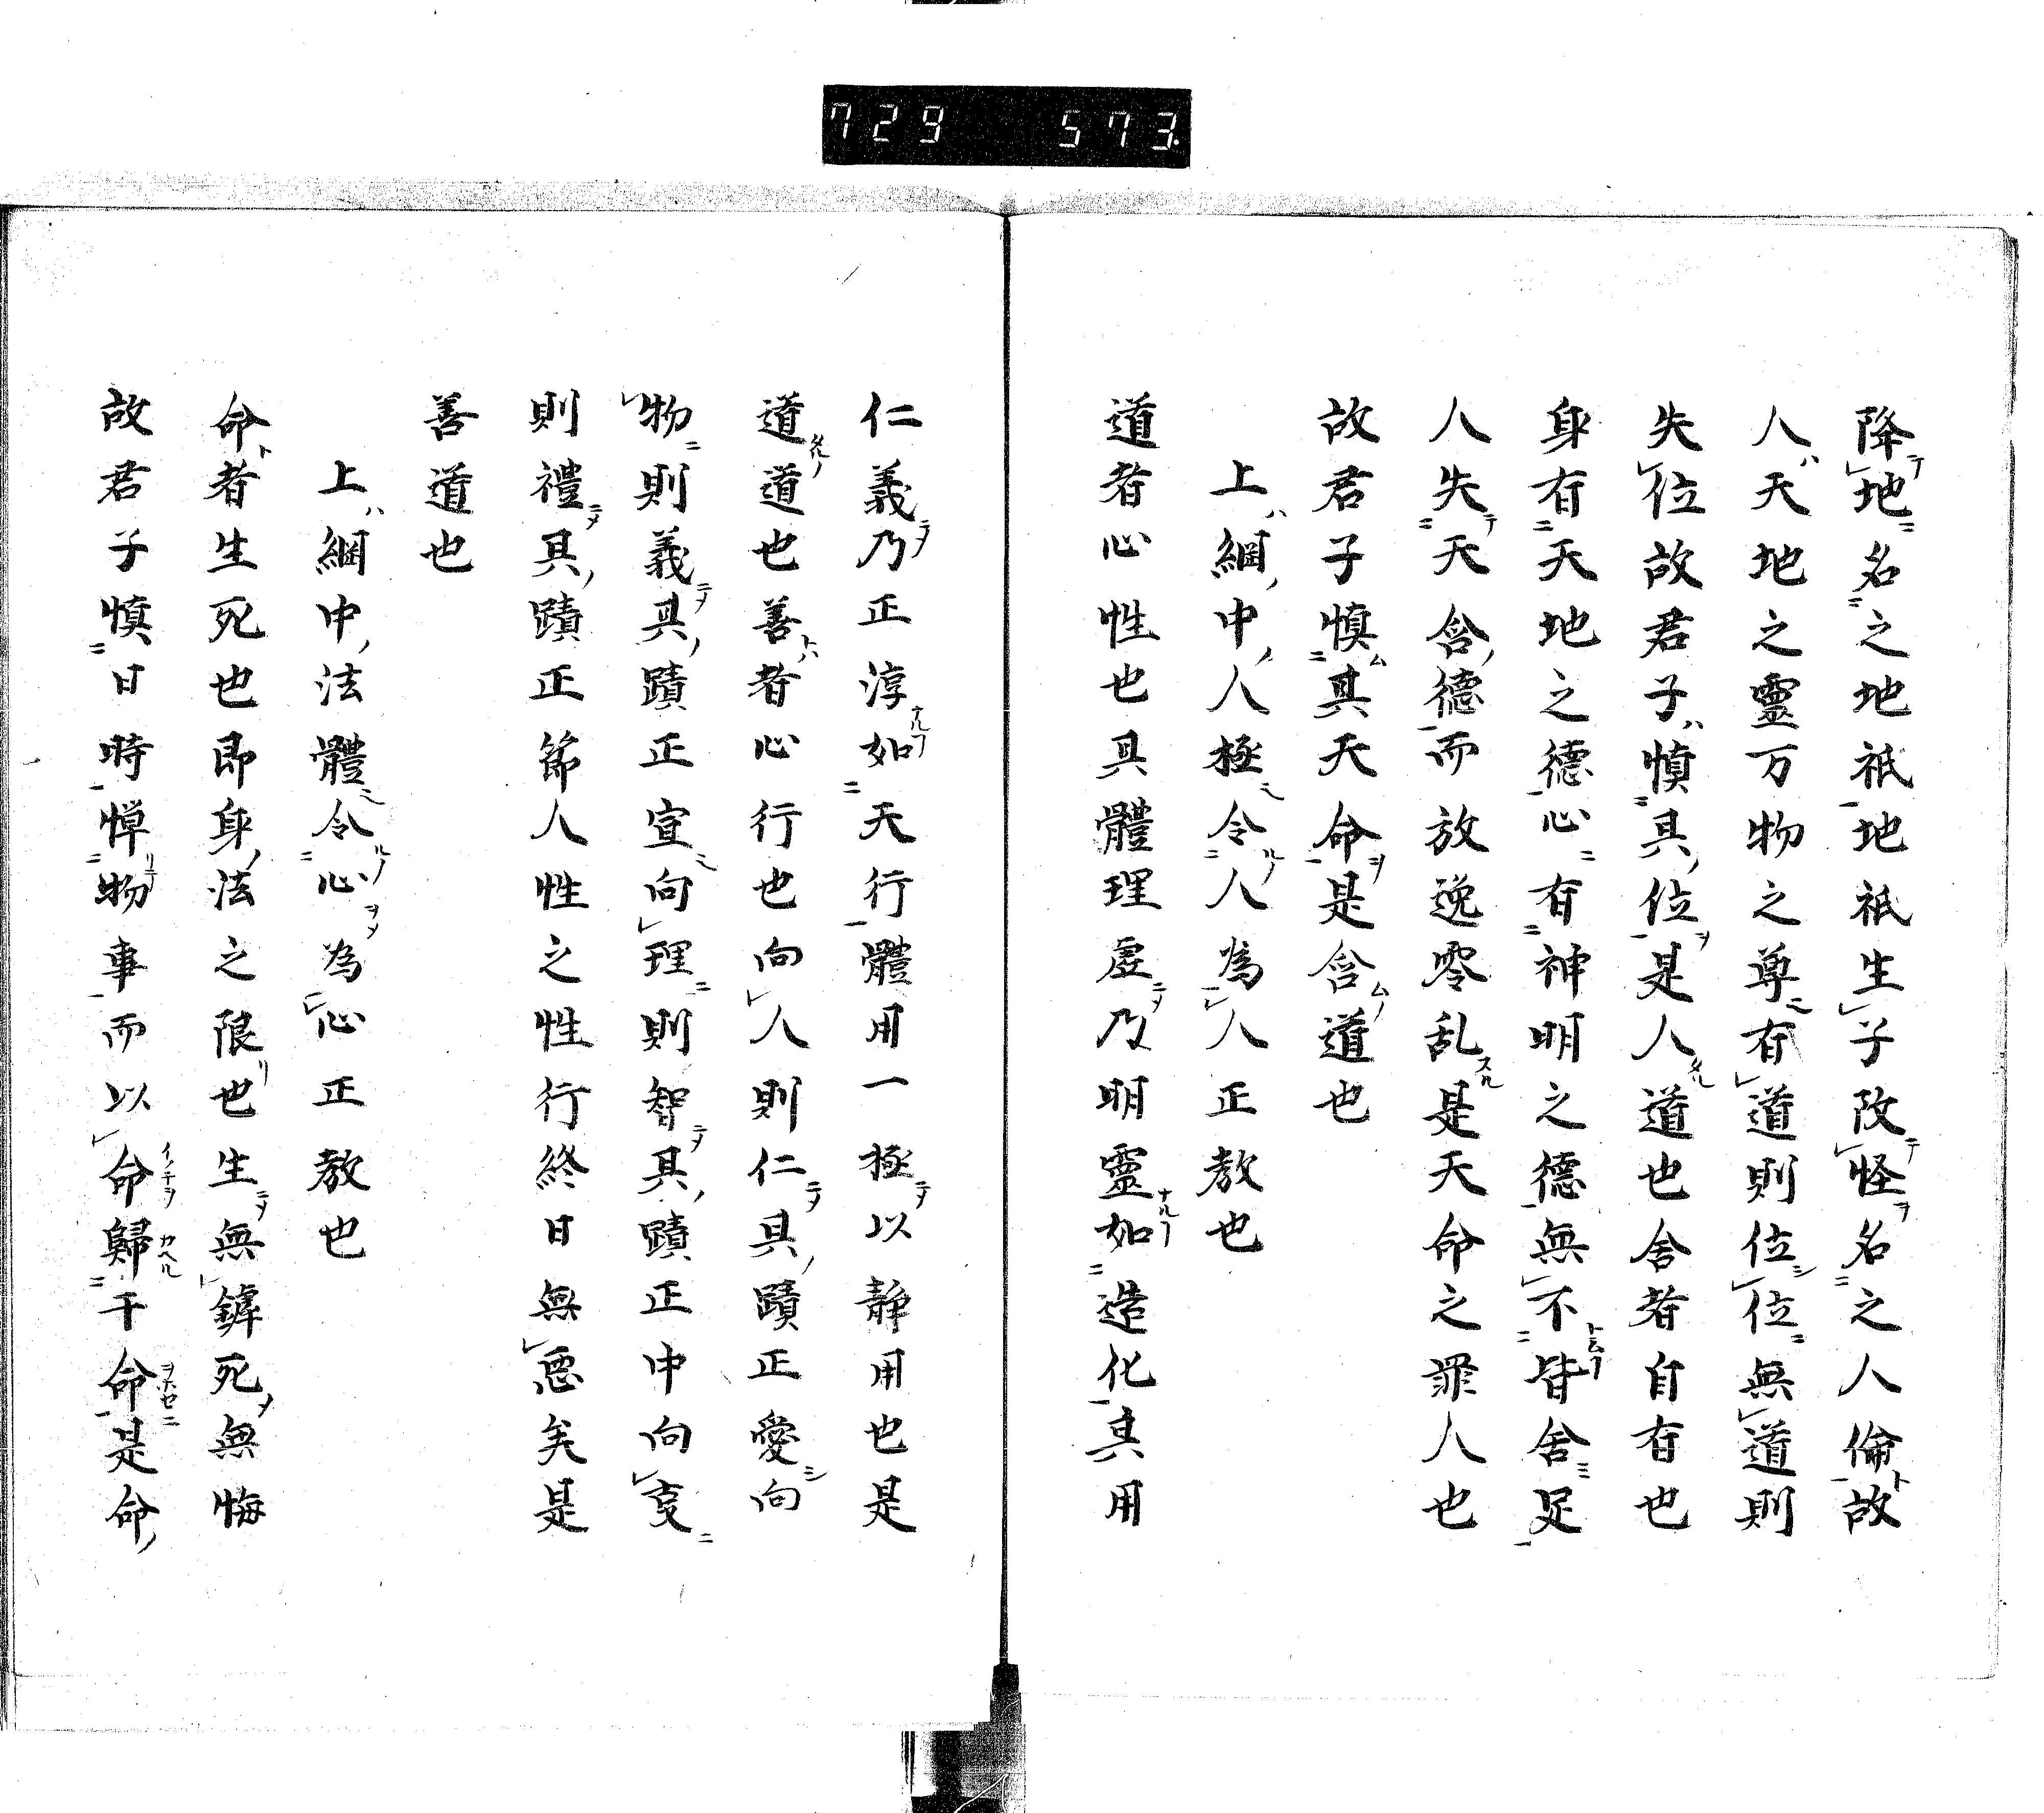 729 573
降地名之地祇地祇生子改怪名之人倫故
人天地之靈万物之尊有道則位位無道則
失位故君子慎其位是人道也舍者自有也
身有天地之德心有神明之德無不皆舍足
人失天含德而放逸零乱是天命之罪人也
故君子慎其天命是含道也
上綱中人極令人為人正教也
道者心性也具體理虛乃明靈如造化其用
仁義乃正淳如天行體用一極以静用也是
道道也善者心行也向人則仁具蹟正愛向
物則義具蹟正宜向理則智具蹟正中向叓
則禮具蹟正節人性之性行終日無惡矣是
善道也
上綱中法體令心為心正教也
命者生死也即身法之限也生無罅死無悔
故君子慎日時憚物事而以命歸于命是命